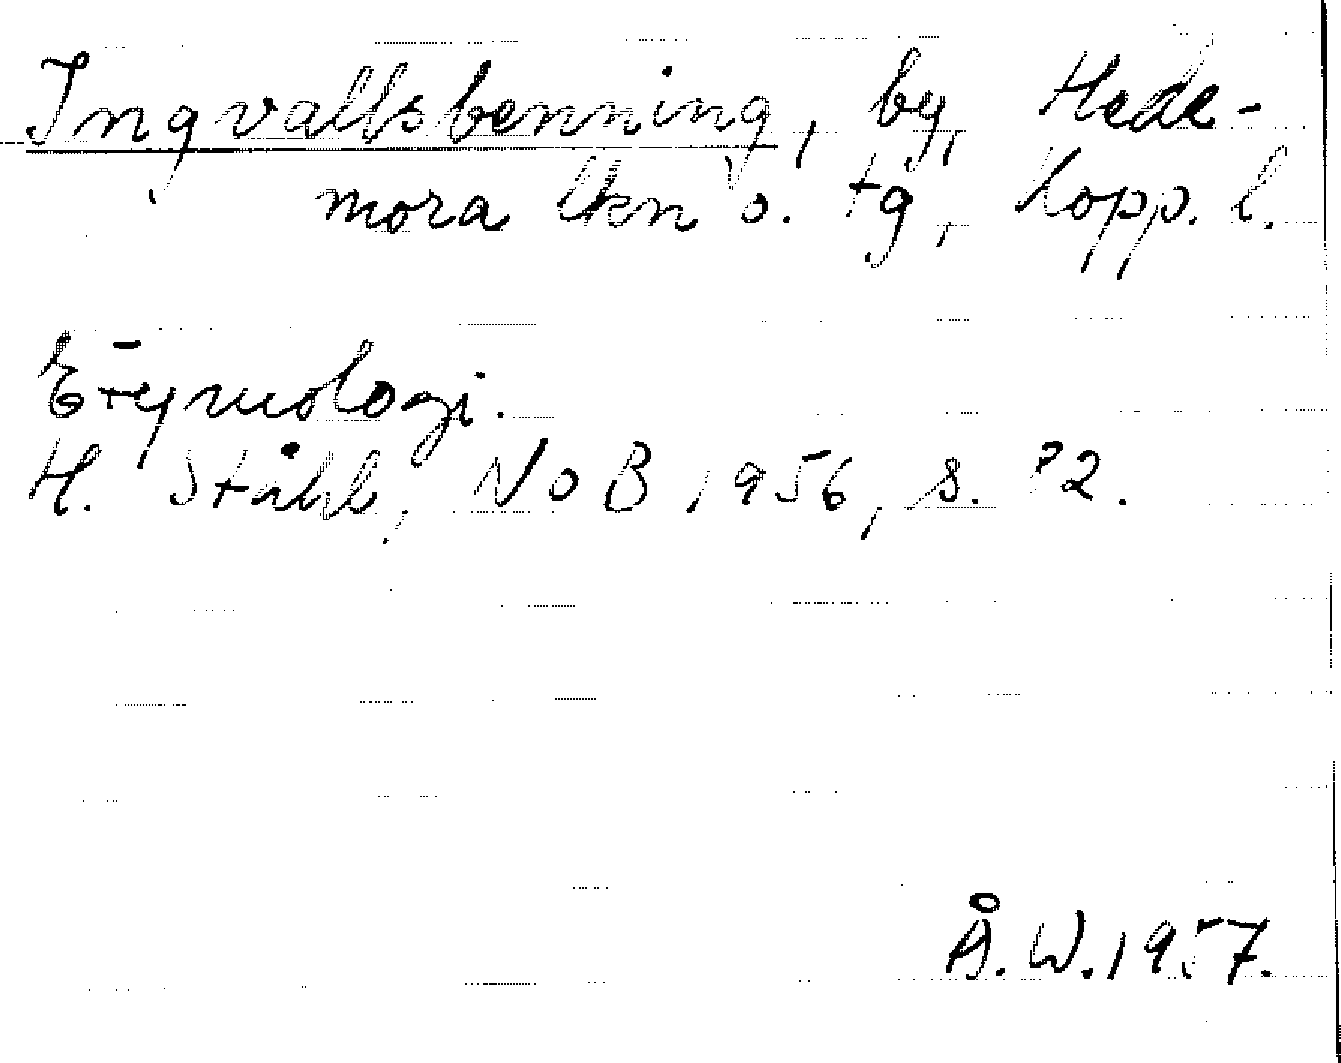 Ingvallsbenning, by, Hede-
mora lkn o. tg, Kopp. l.
Etymologi.
H. Ståhl, NoB 1956, s. 
Å.W. 1957.